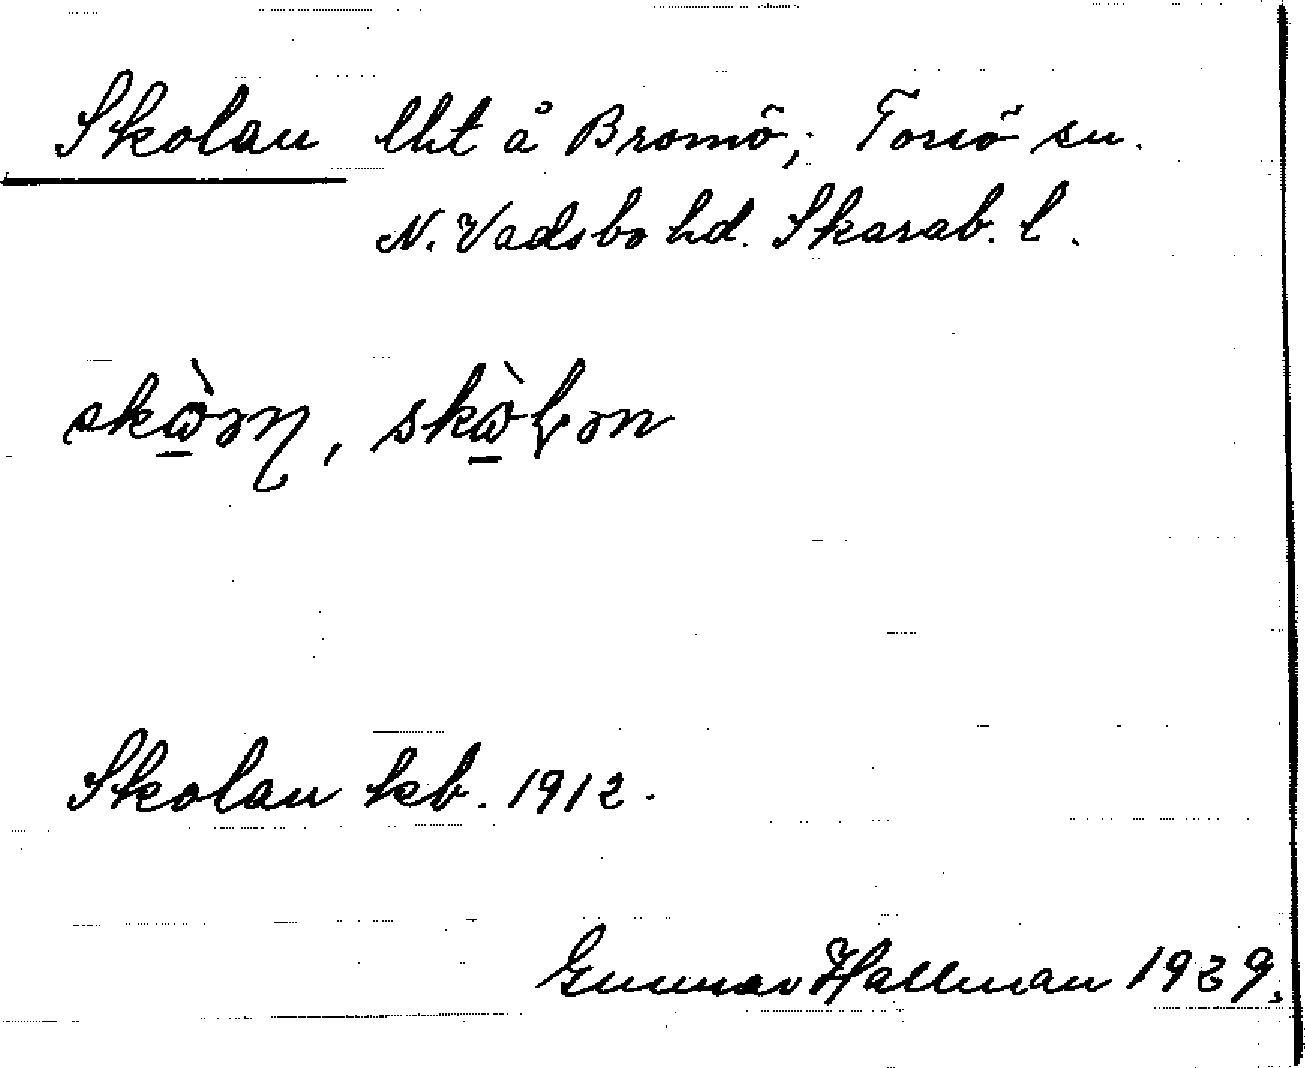 Skolan lht å Bromö; Torsö sn.
N. Vadsbo hd. Skarab. l.
Skolan kb. 1912.
Gunnar Hallman 1939.